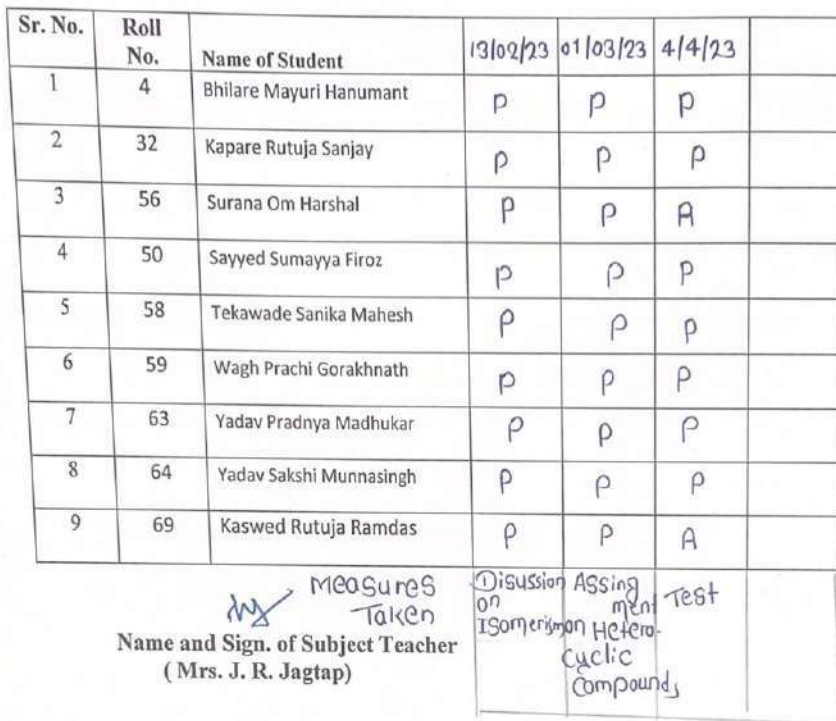 Sr. No. Roll No. Name of Student 13/02/23 01/03/23 4/4/23
1 4 Bhilare Mayuri Hanumant P P P
2 32 Kapare Rutuja Sanjay P P P
3 56 Surana Om Harshal P P A
4 50 Sayyed Sumayya Firoz P P P
5 58 Tekawade Sanika Mahesh P P P
6 59 Wagh Prachi Gorakhnath P P P
7 63 Yadav Pradnya Madhukar P P P
8 64 Yadav Sakshi Munnasingh P P P
9 69 Kaswed Rutuja Ramdas P P A
Measures
Taken
① Disussion
on
ISomerism
Assing
ment
on Hetero-
cyclic
Compounds
Test
Name and Sign. of Subject Teacher
( Mrs. J. R. Jagtap)